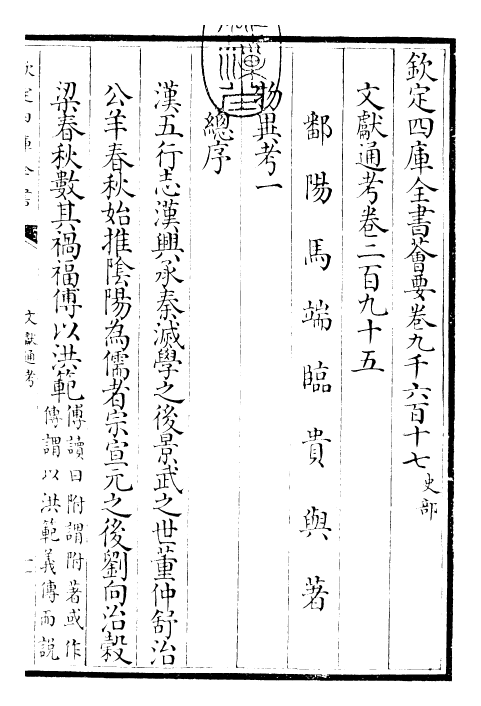 欽定四庫全書薈要卷九千六百十七史部
文獻通考卷二百九十五
鄱陽馬端臨貴與著
物異考一
總序
漢五行志漢興承秦滅學之後景武之世董仲舒治
公羊春秋始推陰陽為儒者宗宣元之後劉向治榖
梁春秋數其禍福傳以洪範傳讀曰附謂附著或作
傳謂以洪範義傳而説
欽定四庫全書
文獻通考